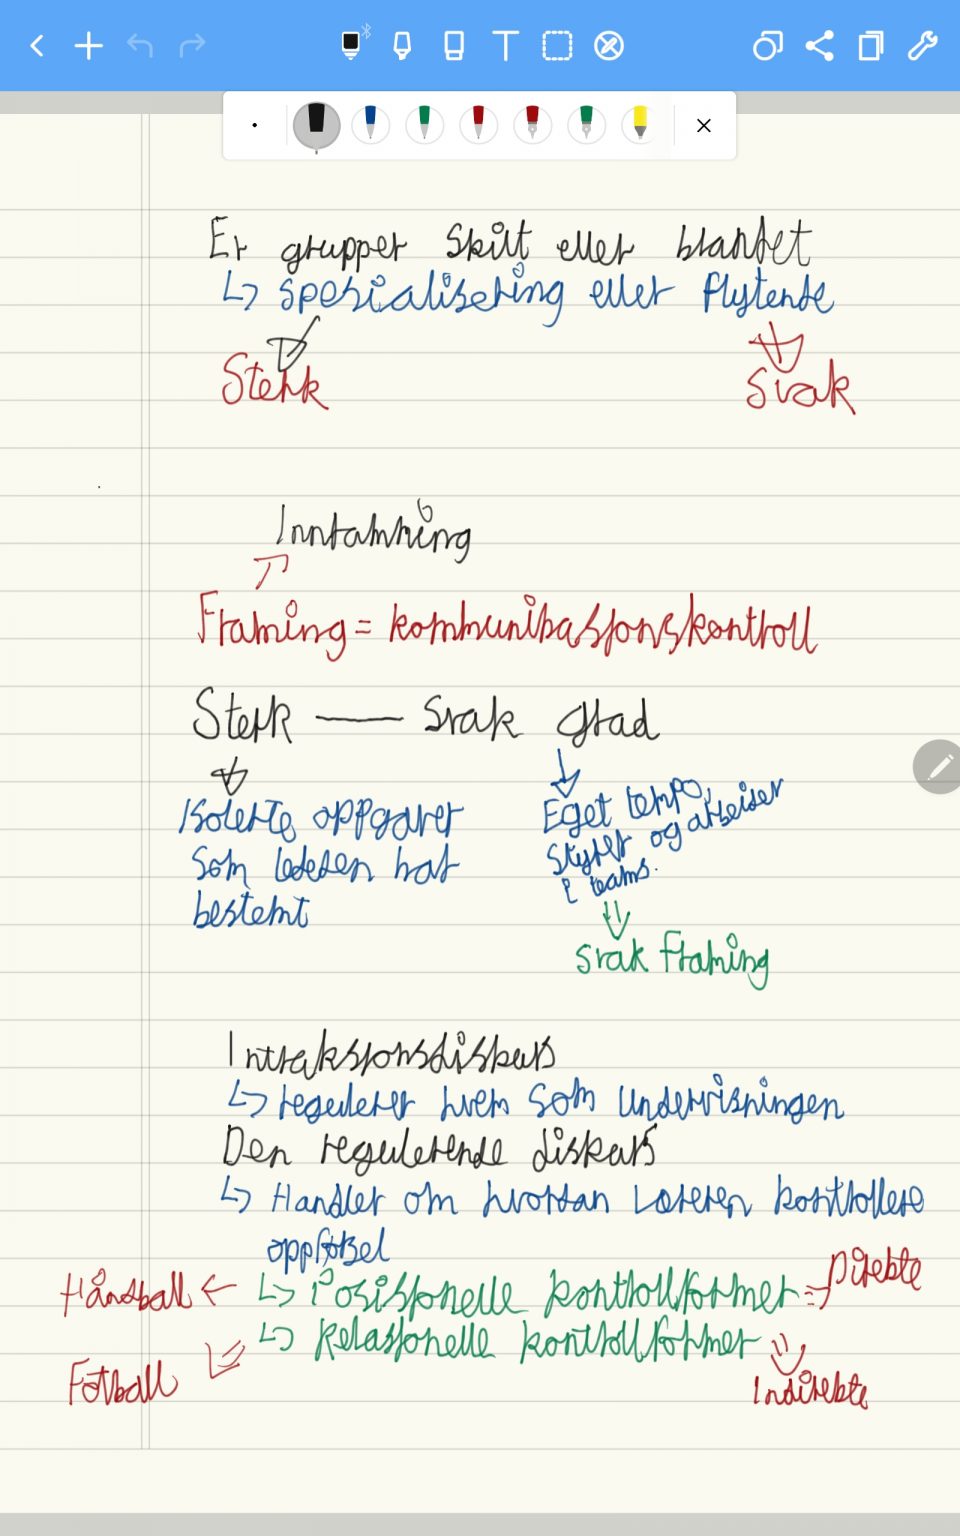 Er grupper skilt eller blandet
↳ spesialisering eller flytende
Sterk
Svak
Innramming
Framing = kommunikasjonskontroll
Sterk — Svak grad
Isolerte oppgaver
som lederen har
bestemt
Eget tempo,
styrer og arbeider
i teams.
svak framing
Intraksjonsdiskurs
↳ regulerer hvem som undervisningen
Den regulerende diskurs
↳ Handler om hvordan Læreren kontrollere
oppførsel
Håndball ← ↳ Posisjonelle kontrollformer ⇒ Direkte
↳ Relasjonelle kontrollformer
Fotball
Indirekte